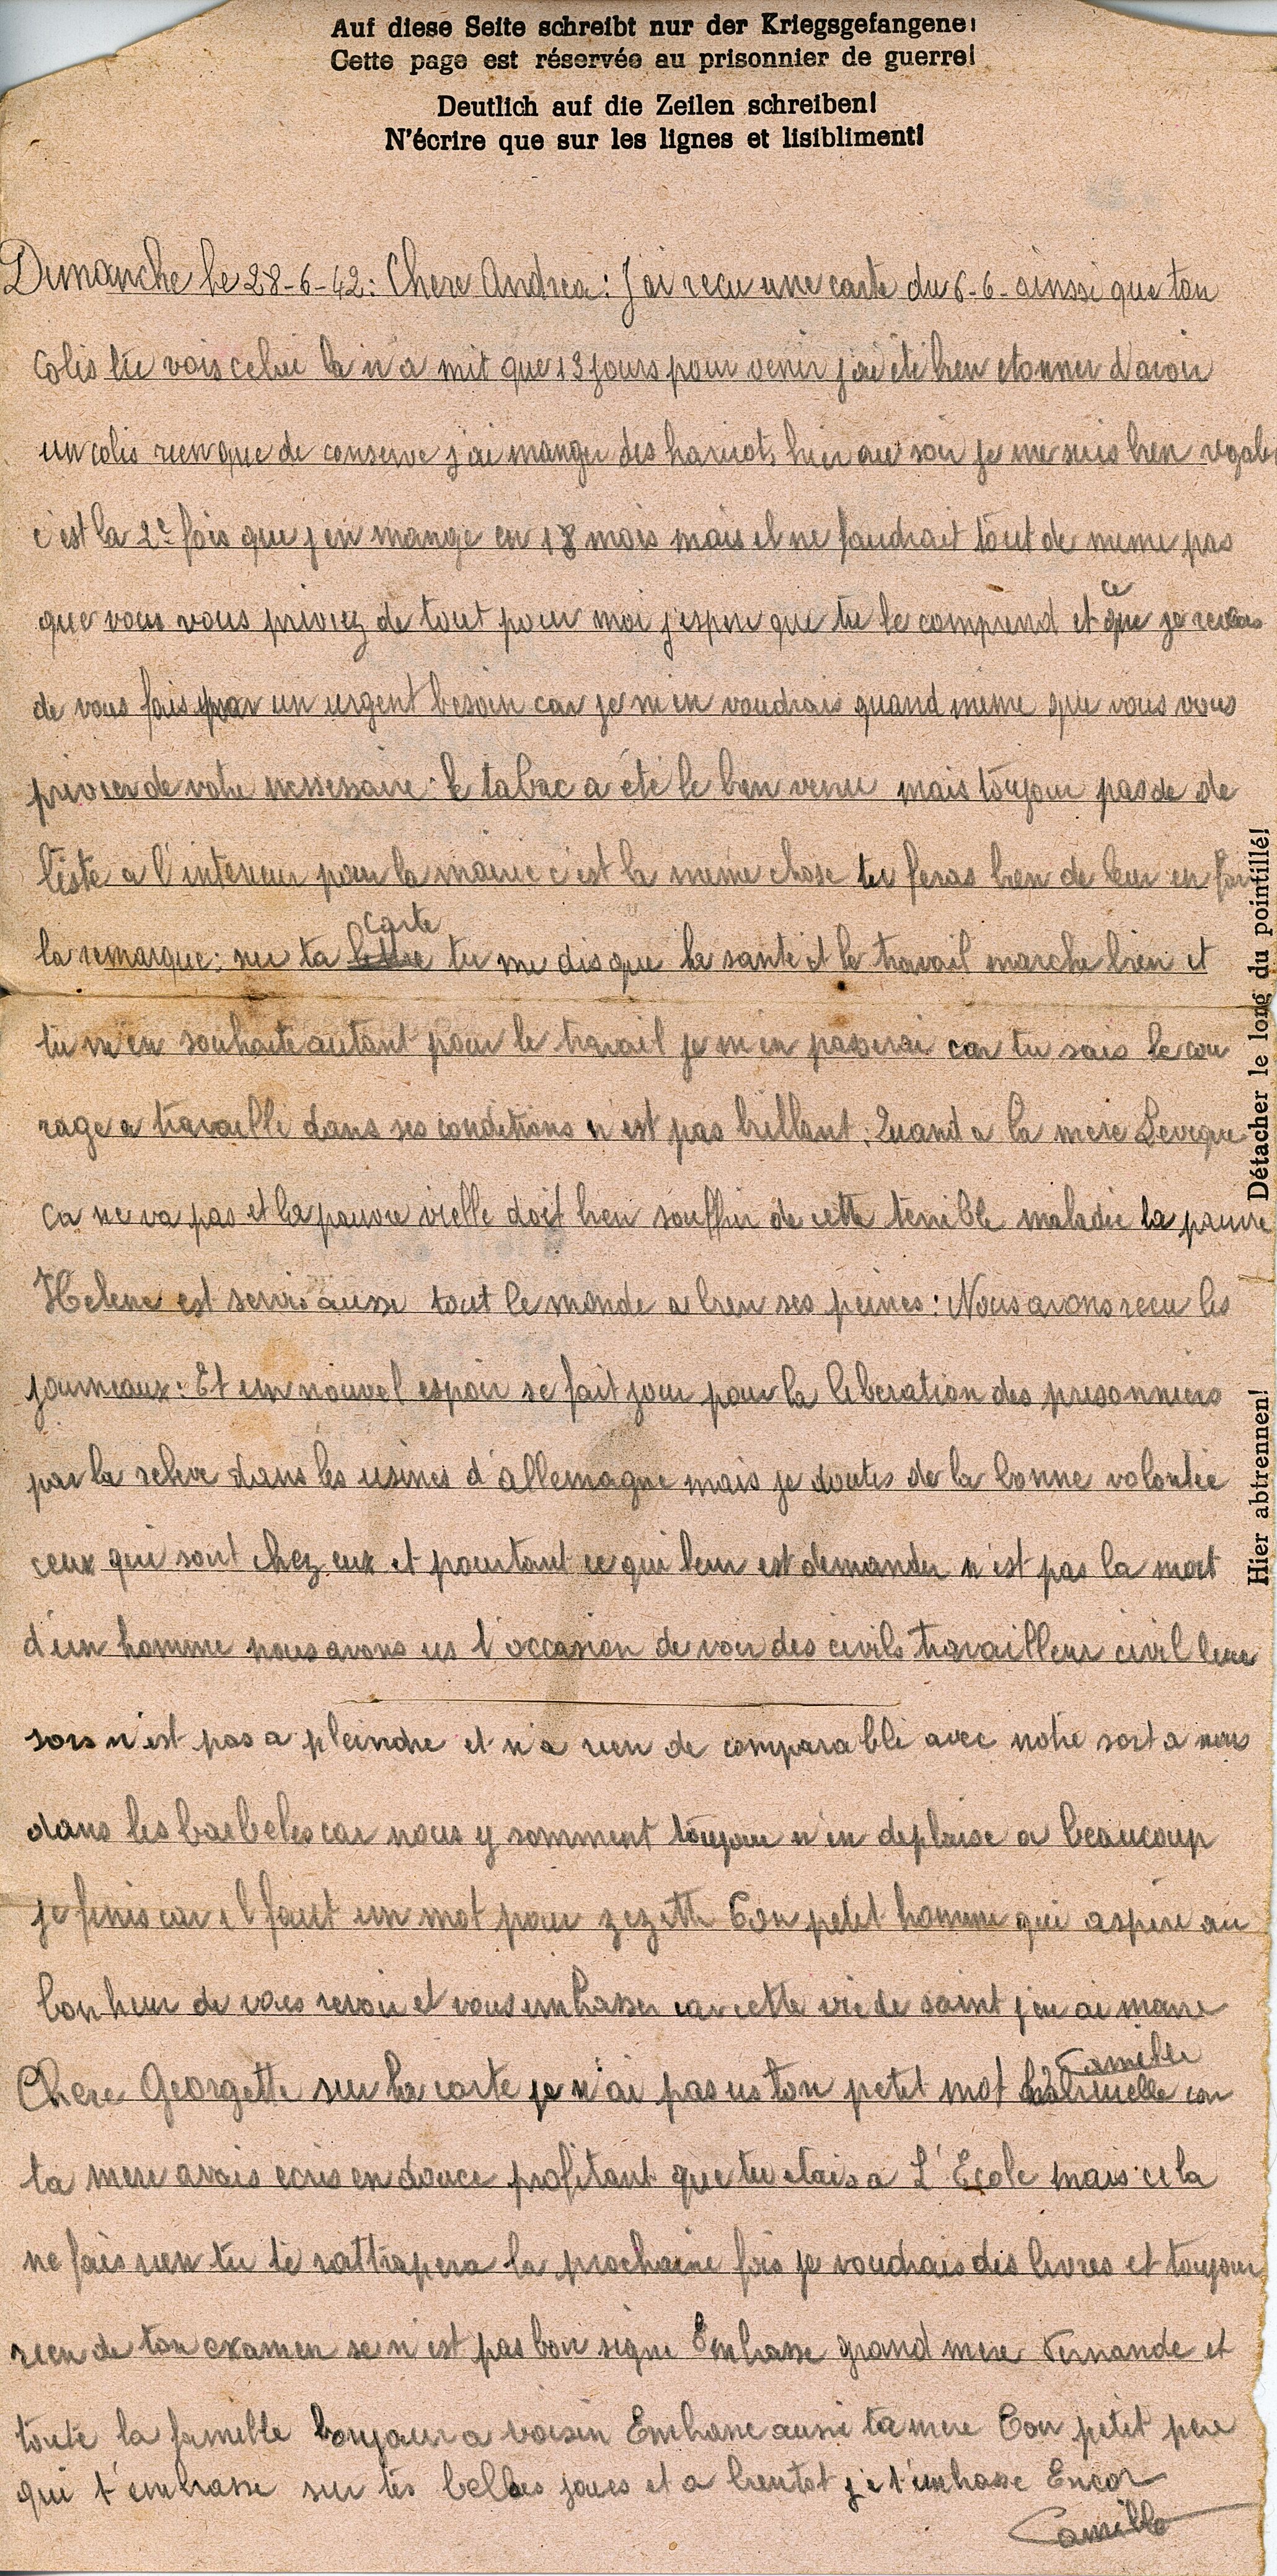 Auf diese Seite schreibt nur der Kriegsgefangene!
Cette page est réservée au prisonnier de guerre!
Deutlich auf die Zeilen schreiben!
N'écrire que sur les lignes et lisibliment!
Dimanche le 28-6-42: Chere Andrea: J'ai reçu une carte du 6-6- ainssi que ton
colis tu vois celui la n'a mit que 13 jours pour venir j'ai été bien etonner d'avoir
un colis rien que de conserve j'ai manger des haricots hier au soir je me suis bien régaler
c'est la 2e fois que j'en mange en 18 mois mais il ne faudrait tout de meme pas
que vous vous priviez de tout pour moi j'espere que tu le comprend et que ce je
de vous fais un urgent besoin car je m'en voudrais quand meme que vous vous
priviez de votre nessessaire: le tabac a été le bien venu mais toujour pas de de
liste a l'interieur pour la mairie c'est la meme chose tu feras bien de leur en faire
la remarque: sur ta lettre carte tu me dis que la santé et le travail marche bien et
tu m'en souhaite autant pour le travail je m'en passerai car tu sais le cou
rage a travaille dans ses conditions n'est pas brillant; Quand a la mere Leveque
ca ne va pas et la pauvre vielle doit bien souffrir de cette terrible maladie la pauvre
Helene est servie aussi tout le monde a bien ses peines: Nous avons recu les
journeaux: Et un nouvel espoir se fait jour pour la liberation des prisonniers
par la releve dans les usines d'allemagne mais je doutes de la bonne volontée
ceux qui sont chez eux et pourtant ce qui leur est demander n'est pas la mort
d'un homme nous avons us l'occasion de voir des civils travailleur civil leur
sors n'est pas a pleindre et n'a rien de comparable avec notre sort a nous
dans les barbeles car nous y somment toujour n'en deplaise a beaucoup
je finis car il faut un mot pour zezette Ton petit homme qui aspire au
bonheur de vous revoir et vous embrasser car cette vie de saint j'en ai marre
Camille
Chere Georgette sur la carte je n'ai pas us ton petit mot habituelle car
ta mere avais ecris en douce profitant que tu etais a L'Ecole mais cela
ne fais rien tu te rattrapera la prochaine fois je voudrais des livres et toujour
rien de ton examen se n'est pas bon signe Embrasse grand mere Fernande et
toute la famille bonjour a voisin Embrasse aussi ta mere Ton petit pere
qui t'embrasse sur tes belles joues et a bientot je t'embrasse Encor
Camille
Détacher le long du pointillé!
Hier abtrennen!